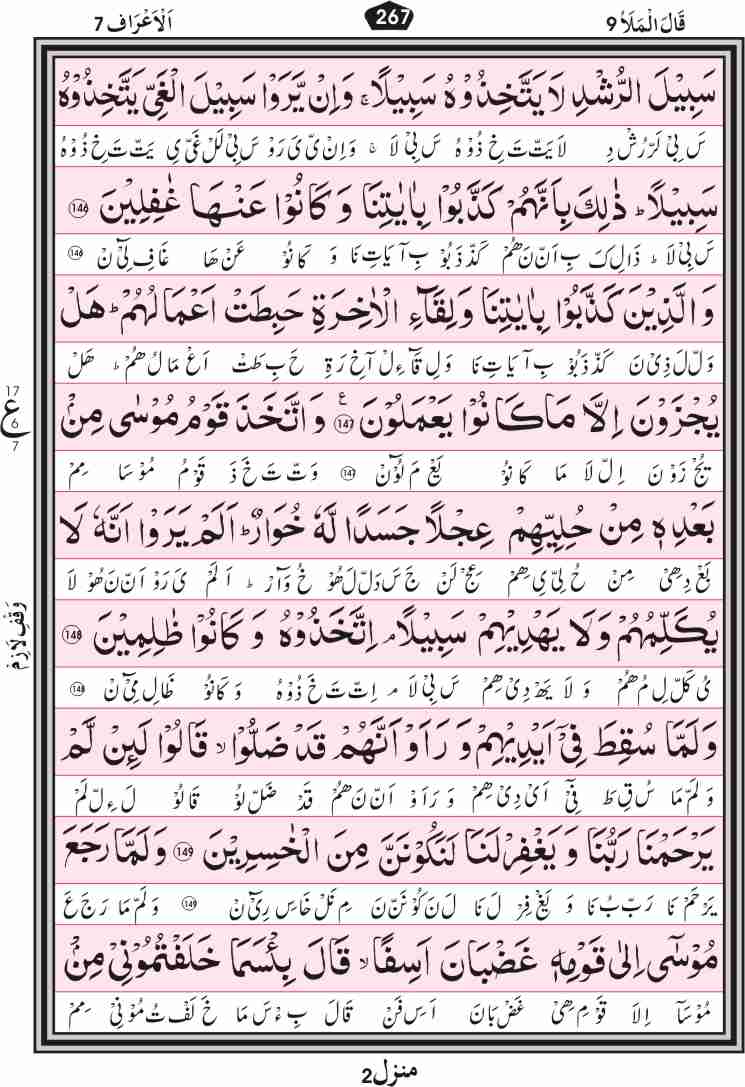 قَالَ الْمَلَاُ 9
267
اَلْاَعْرَاف 7
سَبِيْلَ الرُّشْدِ لَا يَتَّخِذُوْهُ سَبِيْلًا ۚ وَاِنْ يَّرَوْا سَبِيْلَ الْغَيِّ يَتَّخِذُوْهُ
سَ بِىْ لَرْرُشْ دِ لَايَتْ تَ خِ ذُوْ هُ سَ بِىْ لَا ۚ وَاِنْ ىْ ىَ رَوْ سَ بِىْ لَلْ غَىْ ىِ يَتْ تَ خِ ذُوْ هُ
سَبِيْلًا ؕ ذٰلِكَ بِاَنَّهُمْ كَذَّبُوْا بِاٰيٰتِنَا وَ كَانُوْا عَنْهَا غٰفِلِيْنَ 146
سَ بِىْ لَا ؕ ذَالِ كَ بِ اَنْ نَ هُمْ كَذْ ذَ بُوْ بِ آ يَاتِ نَا وَ كَانُوْ عَنْ هَا غَافِ لِىْٓ نْ 146
وَ الَّذِيْنَ كَذَّبُوْا بِاٰيٰتِنَا وَ لِقَآءِ الْاٰخِرَةِ حَبِطَتْ اَعْمَالُهُمْ ؕ هَلْ
وَلْ لَ ذِىْ نَ كَذْ ذَ بُوْ بِ آ يَاتِ نَا وَ لِ قَآءِ لْ آخِ رَ ةِ حَ بِ طَتْ اَعْ مَا لُ هُمْ ؕ هَلْ
يُجْزَوْنَ اِلَّا مَا كَانُوْا يَعْمَلُوْنَ 147 ع وَ اتَّخَذَ قَوْمُ مُوْسٰى مِنْ
يُجْ زَوْ نَ اِلْ لَا مَا كَا نُوْ يَعْ مَ لُوْٓنْ 147 وَتْ تَ خَ ذَ قَوْ مُ مُوْ سَا مِمْ
17
ع
6
7
بَعْدِهٖ مِنْ حُلِيِّهِمْ عِجْلًا جَسَدًا لَّهٗ خُوَارٌ ؕ اَلَمْ يَرَوْا اَنَّهٗ لَا
بَعْ دِهِىْ مِنْ حُ لِىْ ىِ هِمْ عِجْ لَنْ جَ سَ دَلْ لَ هُوْ خُ وَآرْ ؕ اَ لَمْ ىَ رَوْ اَنْ نَ هُوْ لَا
يُكَلِّمُهُمْ وَلَا يَهْدِيْهِمْ سَبِيْلًا ۘ اِتَّخَذُوْهُ وَ كَانُوْا ظٰلِمِيْنَ 148
ىُ كَلْ لِ مُ هُمْ وَ لَا يَهْ دِىْ هِمْ سَ بِىْ لَا ۘ اِتْ تَ خَ ذُوْ هُ وَ كَانُوْ ظَالِ مِىْٓ نْ 148
وَقْفِ لَازِم
وَلَمَّا سُقِطَ فِيْٓ اَيْدِيْهِمْ وَ رَاَوْا اَنَّهُمْ قَدْ ضَلُّوْا ۙ قَالُوْا لَئِنْ لَّمْ
وَ لَمْ مَا سُ قِ طَ فِىْٓ اَىْ دِىْ هِمْ وَ رَ اَوْ اَنْ نَ هُمْ قَدْ ضَلْ لُوْ قَالُوْ لَ ءِلْ لَمْ
يَرْحَمْنَا رَبُّنَا وَ يَغْفِرْ لَنَا لَنَكُوْنَنَّ مِنَ الْخٰسِرِيْنَ 149 وَلَمَّا رَجَعَ
يَرْ حَمْ نَا رَبْ بُ نَا وَ يَغْ فِرْ لَ نَا لَ نَ كُوْ نَنْ نَ مِ نَلْ خَاسِ رِىْٓ نْ 149 وَ لَمْ مَا رَ جَ عَ
مُوْسٰٓى اِلٰى قَوْمِهٖ غَضْبَانَ اَسِفًا ۙ قَالَ بِئْسَمَا خَلَفْتُمُوْنِيْ مِنْۢ
مُوْسَآ اِلَا قَوْ مِ هِىْ غَضْ بَانَ اَ سِ فَنْ قَالَ بِ ءْ سَ مَا خَ لَفْ تُ مُوْ نِىْ مِمْ
منزل2